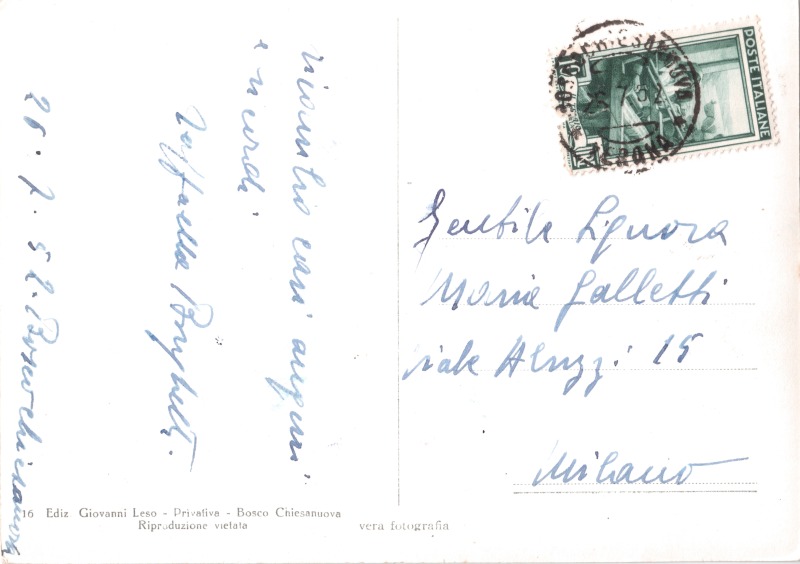 26.7.52. Boscochiesanuova
ricambio cari auguri
e ricordi
Raffaella
Gentile Signora
Maria Galletti
viale Abruzzi 15
Milano
16 Ediz. Giovanni Leso - Privativa - Bosco Chiesanuova
Riproduzione vietata
vera fotografia
POSTE ITALIANE
LIRE
BOSCO CHIESANUOVA
26.7.52
* VERONA *